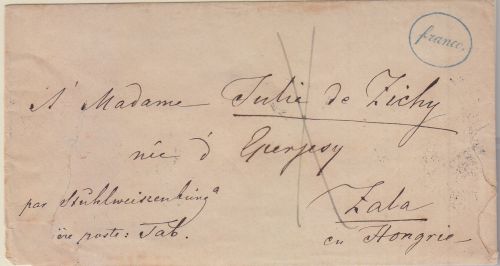 franco.
A Madame Julie de Zichy
née d' Eperjesy
par Stuhlweissenburg
Zala
ère poste: Tab.
en Hongrie